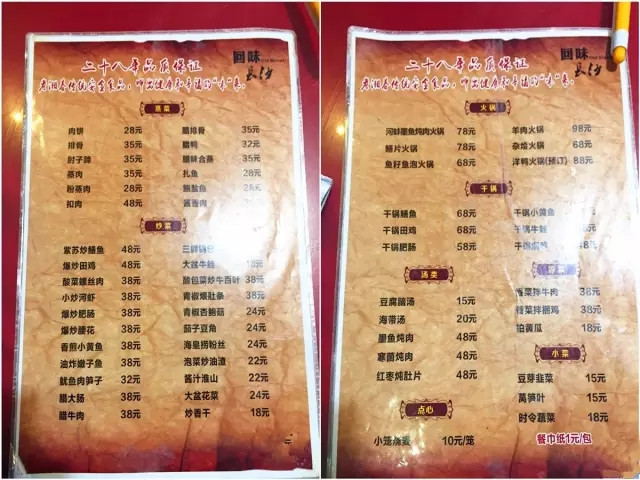 回味
长沙
二十八年品质保证
蒸菜
肉饼 28元
排骨 35元
肘子蹄 35元
蒸肉 35元
粉蒸肉 28元
扣肉 48元
腊排骨 35元
腊鸭 32元
腊味合蒸 35元
扎鱼 28元
腊盐鱼 28元
酱香肉 35元
炒菜
紫苏炒鳝鱼 48元
爆炒田鸡 48元
酸菜螺丝肉 38元
小炒河虾 38元
爆炒肥肠 38元
爆炒腰花 38元
香煎小黄鱼 38元
油炸嫩子鱼 38元
鱿鱼肉笋子 32元
腊大肠 38元
腊牛肉 38元
三鲜锅巴
大盆牛蛙 18元
酸包菜炒牛百叶 38元
青椒煨肚条 38元
青椒杏鲍菇 24元
茄子豆角 24元
海皇捞粉丝 24元
泡菜炒油渣 22元
酱汁淮山 22元
大盆花菜 24元
炒香干 18元
回味
长沙
二十八年品质保证
火锅
河蚌墨鱼炖肉火锅 78元
鳝片火锅 78元
鱼籽鱼泡火锅 68元
羊肉火锅 98元
杂烩火锅 68元
洋鸭火锅(预订) 88元
干锅
干锅鳝鱼 68元
干锅田鸡 68元
干锅肥肠 58元
干锅小黄鱼 58元
干锅牛蛙
干锅 48元
汤类
豆腐脑汤 15元
海带汤 20元
墨鱼炖肉 48元
寒菌炖肉 48元
红枣炖肚片 48元
香菜拌牛肉 38元
拌捆鸡 38元
拍黄瓜 18元
小菜
豆芽韭菜 15元
莴笋叶 15元
时令蔬菜 18元
点心
小笼 10元/笼
餐巾纸1元/包